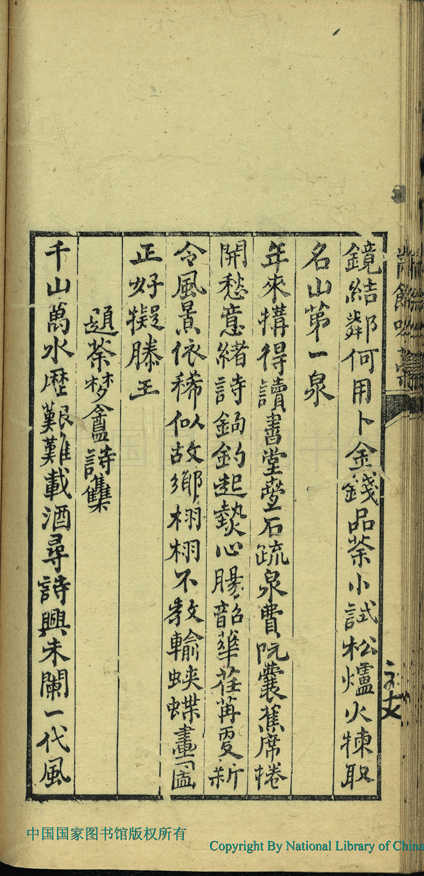 鏡結鄰何用卜金錢品茶小試松爐火揀取
名山第一泉
年來搆得讀書堂壘石疏泉費阮囊蕉席捲
開愁意緒詩鈎釣起熱心腸韶華荏苒更新
令風景依稀似故鄉栩栩不教輸蛺蝶畫圖
正好擬滕王
題茶夢盦詩集
千山萬水歷艱難載酒尋詩興未闌一代風
中国国家图书馆版权所有
Copyright By National Library of China